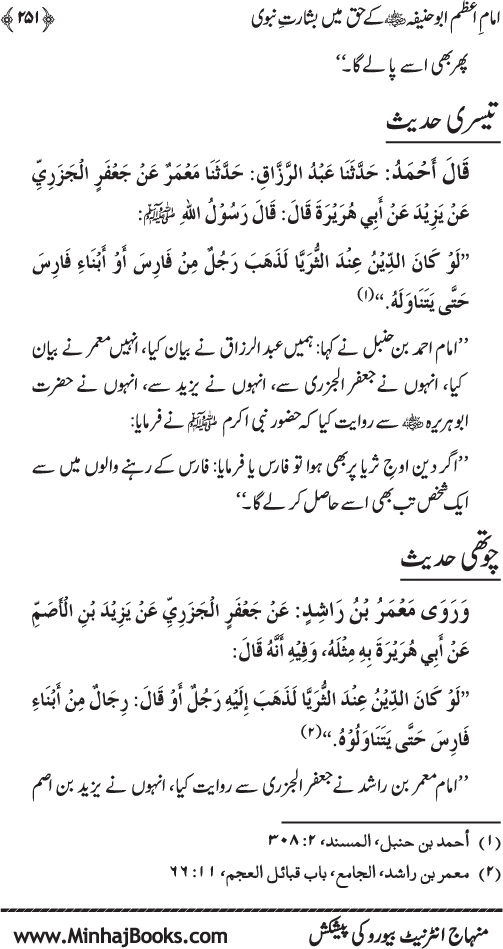 امامِ اعظم ابو حنیفہ ؓ کے حق میں بشارتِ نبوی ﴿۲۵۱﴾
پھر بھی اسے پا لے گا۔‘‘
تیسری حدیث
قَالَ أَحْمَدُ: حَدَّثَنَا عَبْدُ الرَّزَّاقِ: حَدَّثَنَا مَعْمَرٌ عَنْ جَعْفَرٍ الْجَزَرِيِّ
عَنْ يَزِيْدَ عَنْ أَبِي هُرَيْرَةَ قَالَ: قَالَ رَسُوْلُ اللهِ ﷺ:
’’لَوْ كَانَ الدِّيْنُ عِنْدَ الثُّرَيَّا لَذَهَبَ رَجُلٌ مِنْ فَارِسَ أَوْ أَبْنَاءِ فَارِسَ
حَتَّى يَتَنَاوَلَهُ.‘‘ (۱)
’’امام احمد بن حنبل نے کہا: ہمیں عبد الرزاق نے بیان کیا، انہیں معمر نے بیان
کیا، انہوں نے جعفر الجزری سے، انہوں نے یزید سے، انہوں نے حضرت
ابو ہریرہ ؓ سے روایت کیا کہ حضور نبی اکرم ﷺ نے فرمایا:
’’اگر دین اوجِ ثریا پر بھی ہوا تو فارس یا فرمایا: فارس کے رہنے والوں میں سے
ایک شخص تب بھی اسے حاصل کر لے گا۔‘‘
چوتھی حدیث
وَرَوَى مَعْمَرُ بْنُ رَاشِدٍ: عَنْ جَعْفَرٍ الْجَزَرِيِّ عَنْ يَزِيْدَ بْنِ الْأَصَمِّ
عَنْ أَبِي هُرَيْرَةَ بِهِ مِثْلَهُ، وَفِيْهِ أَنَّهُ قَالَ:
’’لَوْ كَانَ الدِّيْنُ عِنْدَ الثُّرَيَّا لَذَهَبَ إِلَيْهِ رَجُلٌ أَوْ قَالَ: رِجَالٌ مِنْ أَبْنَاءِ
فَارِسَ حَتَّى يَتَنَاوَلُوْهُ.‘‘ (۲)
’’امام معمر بن راشد نے جعفر الجزری سے روایت کیا، انہوں نے یزید بن اصم
(۱) أحمد بن حنبل، المسند، ۲: ۳۰۸
(۲) معمر بن راشد، الجامع، باب قبائل العجم، ۱۱: ۶۶
منہاج انٹرنیٹ بیورو کی پیشکش www.MinhajBooks.com